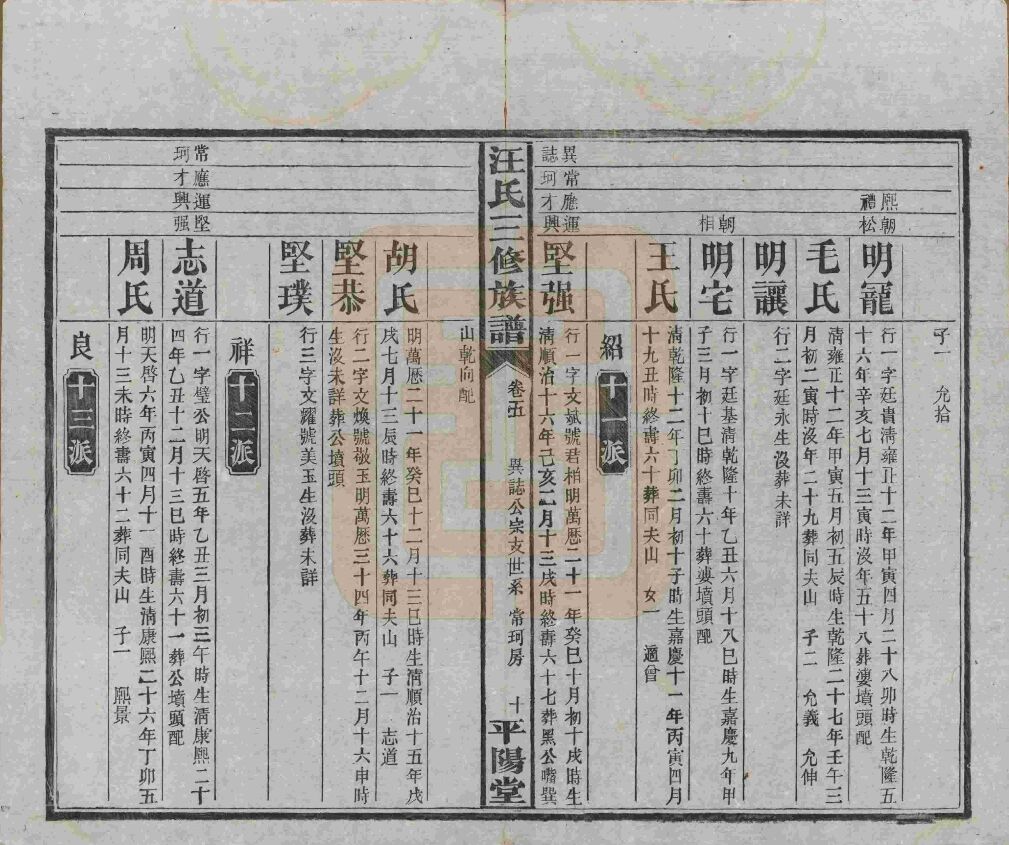 子一 允拾
熙 朝
禮 松
明寵 行一字廷貴清雍正十二年甲寅四月二十八卯時生乾隆五
十六年辛亥七月十三寅時沒年五十八葬婆墳頭配
毛氏 清雍正十二年甲寅五月初五辰時生乾隆二十七年壬午三
月初二寅時沒年二十九葬同夫山 子二 允義 允伸
明讓 行二字廷永生沒葬未詳
朝
相
明宅 行一字廷基清乾隆十年乙丑六月十八巳時生嘉慶九年甲
子三月初十巳時終壽六十葬婆墳頭配
王氏 清乾隆十二年丁卯二月初十子時生嘉慶十一年丙寅四月
十九丑時終壽六十葬同夫山 女一 適曾
紹 十一派
異 常 應 運
誌 珂 才 興
堅强 行一字文斌號君相明萬歷二十一年癸巳十月初十戌時生
清順治十六年己亥二月十三戌時終壽六十七葬黑公嘴巽
汪氏三修族譜 卷五 異誌公宗支世系 常珂房 十 平陽堂
山乾向配
胡氏 明萬歷二十一年癸巳十二月十三巳時生清順治十五年戊
戌七月十三辰時終壽六十六葬同夫山 子一 志道
堅恭 行二字文煥號敬玉明萬歷三十四年丙午十二月十六申時
生沒未詳葬公墳頭
堅璞 行三字文耀號美玉生沒葬未詳
祥 十二派
常 應 運 堅
珂 才 興 强
志道 行一字璧公明天啓五年乙丑三月初三午時生清康熙二十
四年乙丑十二月十三巳時終壽六十一葬公墳頭配
周氏 明天啓六年丙寅四月十一酉時生清康熙二十六年丁卯五
月十三未時終壽六十二葬同夫山 子一 熙景
良 十三派